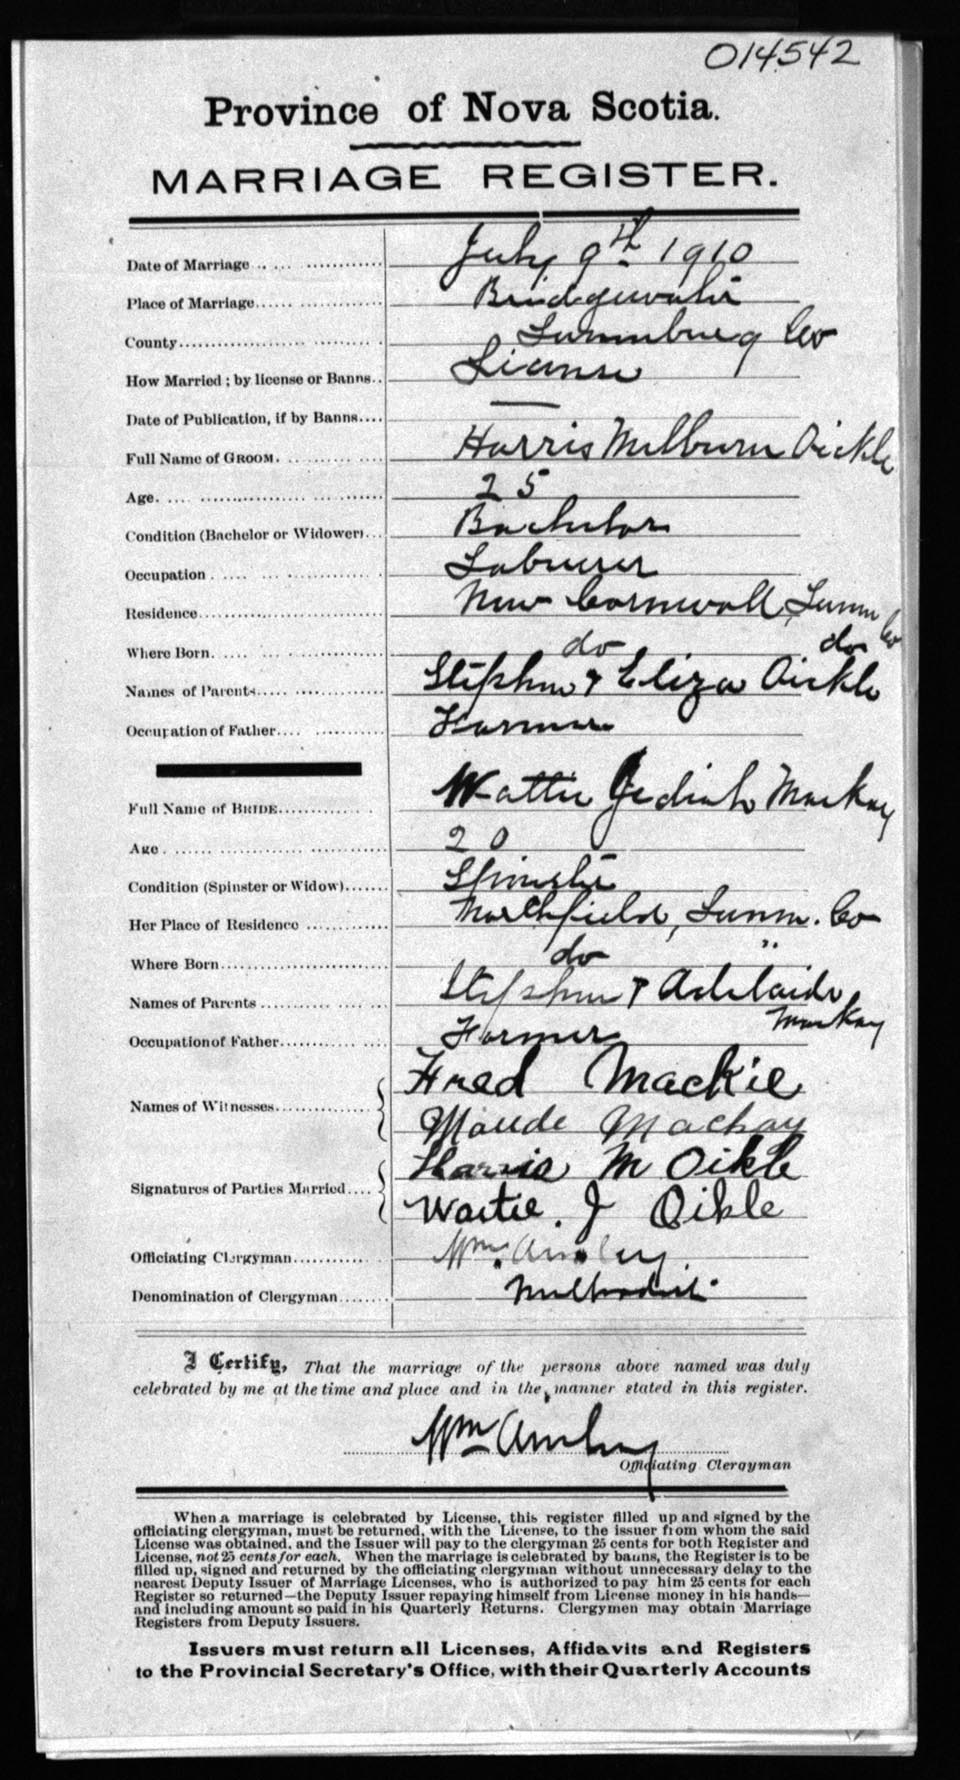 014542
Province of Nova Scotia.
MARRIAGE REGISTER.
Date of Marriage July 9th 1910
Place of Marriage Bridgewater
County Lunenburg Co
How Married; by license or Banns License
Date of Publication, if by Banns —
Full Name of GROOM Harris Milburn Oickle
Age 25
Condition (Bachelor or Widower) Bachelor
Occupation Labourer
Residence New Cornwall, Lunn Co
Where Born do do
Names of Parents Stephen & Eliza Oickle
Occupation of Father Farmer
Full Name of BRIDE Wattie Jediah Mackay
Age 20
Condition (Spinster or Widow) Spinster
Her Place of Residence Northfield, Lunn. Co
Where Born do "
Names of Parents Stephen & Adelaide Mackay
Occupation of Father Farmer
Names of Witnesses Fred Mackie
Maude Mackay
Signatures of Parties Married Harris M Oikle
Wattie. J Oikle
Officiating Clergyman Wm.
Denomination of Clergyman Methodist
I Certify, That the marriage of the persons above named was duly
celebrated by me at the time and place and in the manner stated in this register.
Wm
Officiating Clergyman
When a marriage is celebrated by License, this register filled up and signed by the
officiating clergyman, must be returned, with the License, to the issuer from whom the said
License was obtained, and the Issuer will pay to the clergyman 25 cents for both Register and
License, not 25 cents for each. When the marriage is celebrated by banns, the Register is to be
filled up, signed and returned by the officiating clergyman without unnecessary delay to the
nearest Deputy Issuer of Marriage Licenses, who is authorized to pay him 25 cents for each
Register so returned—the Deputy Issuer repaying himself from License money in his hands—
and including amount so paid in his Quarterly Returns. Clergymen may obtain Marriage
Registers from Deputy Issuers.
Issuers must return all Licenses, Affidavits and Registers
to the Provincial Secretary's Office, with their Quarterly Accounts